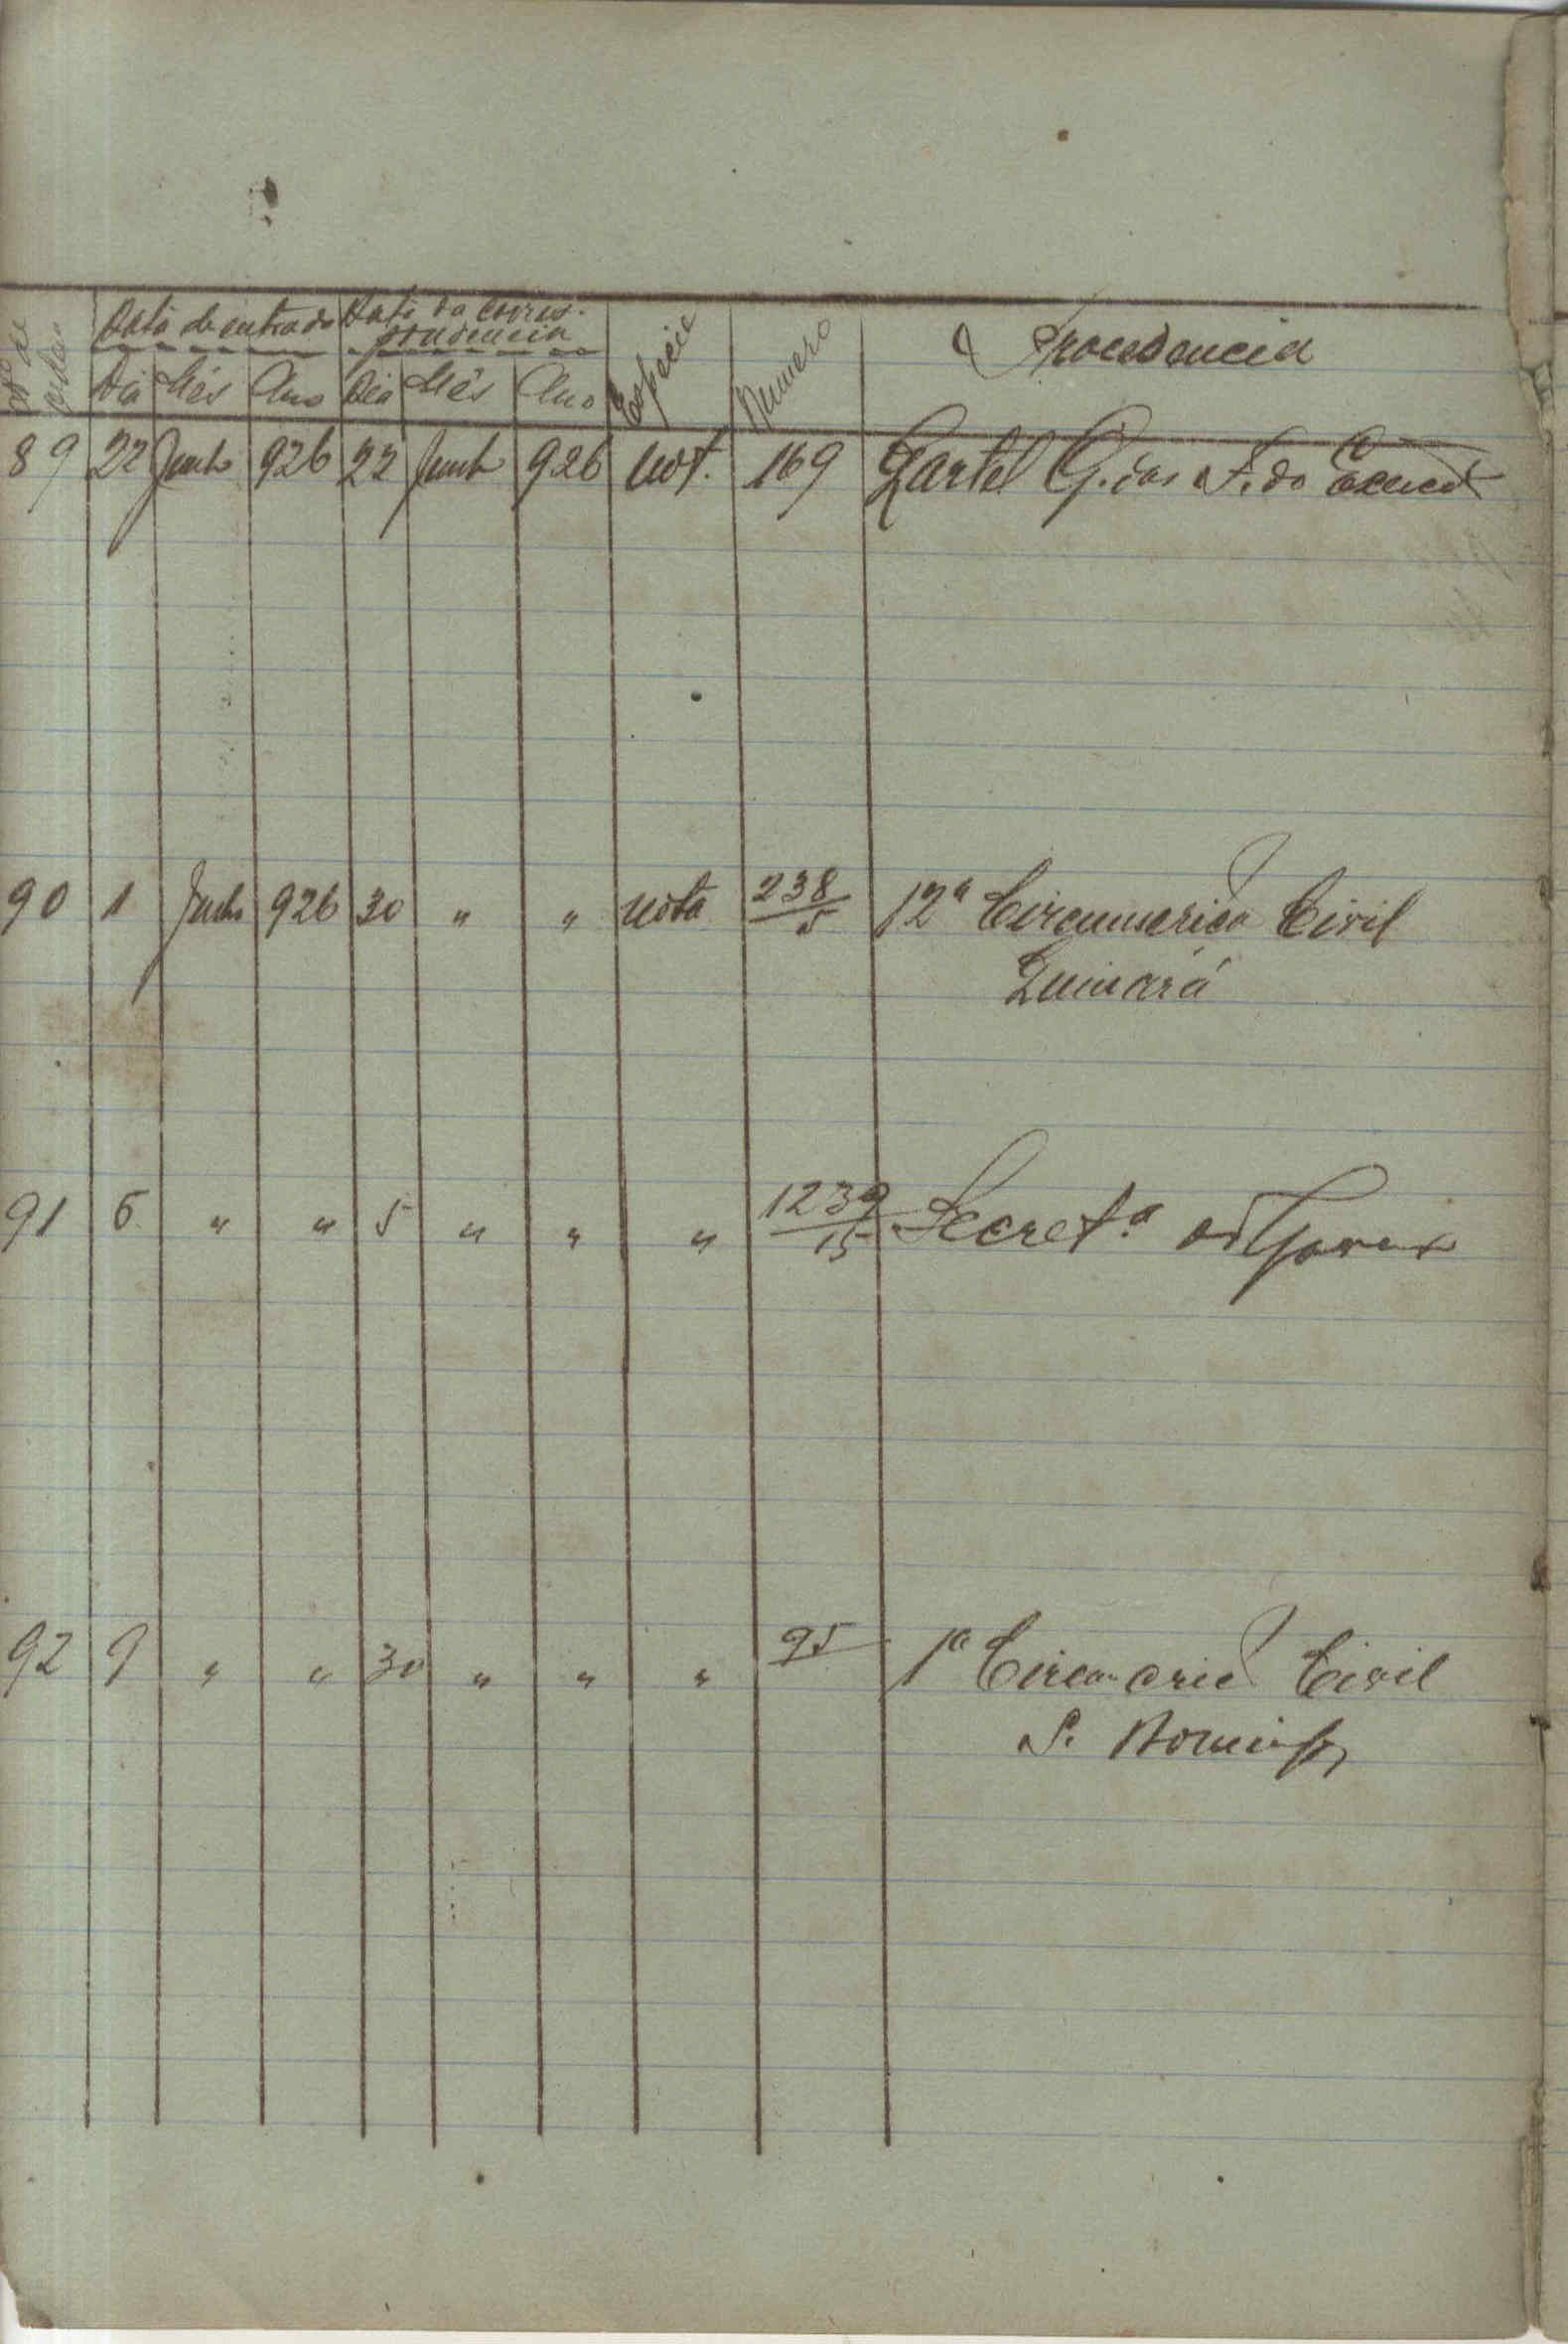 Nº de ordem Data de entrada Data da corres-
pondencia Especie Numero Procedencia
Dia Mês Ano Dia Mês Ano
89 22 Junho 926 22 Junh 926 not. 169 Quartel G. das F. do
90 1 926 30 " " nota 238/5 12ª Circunscrição Civil
Quinará
91 6 " " 5 " " " 1239/15 Secretª do Governo
92 9 " " 30 " " " 95 1ª Civil
S. Domingos